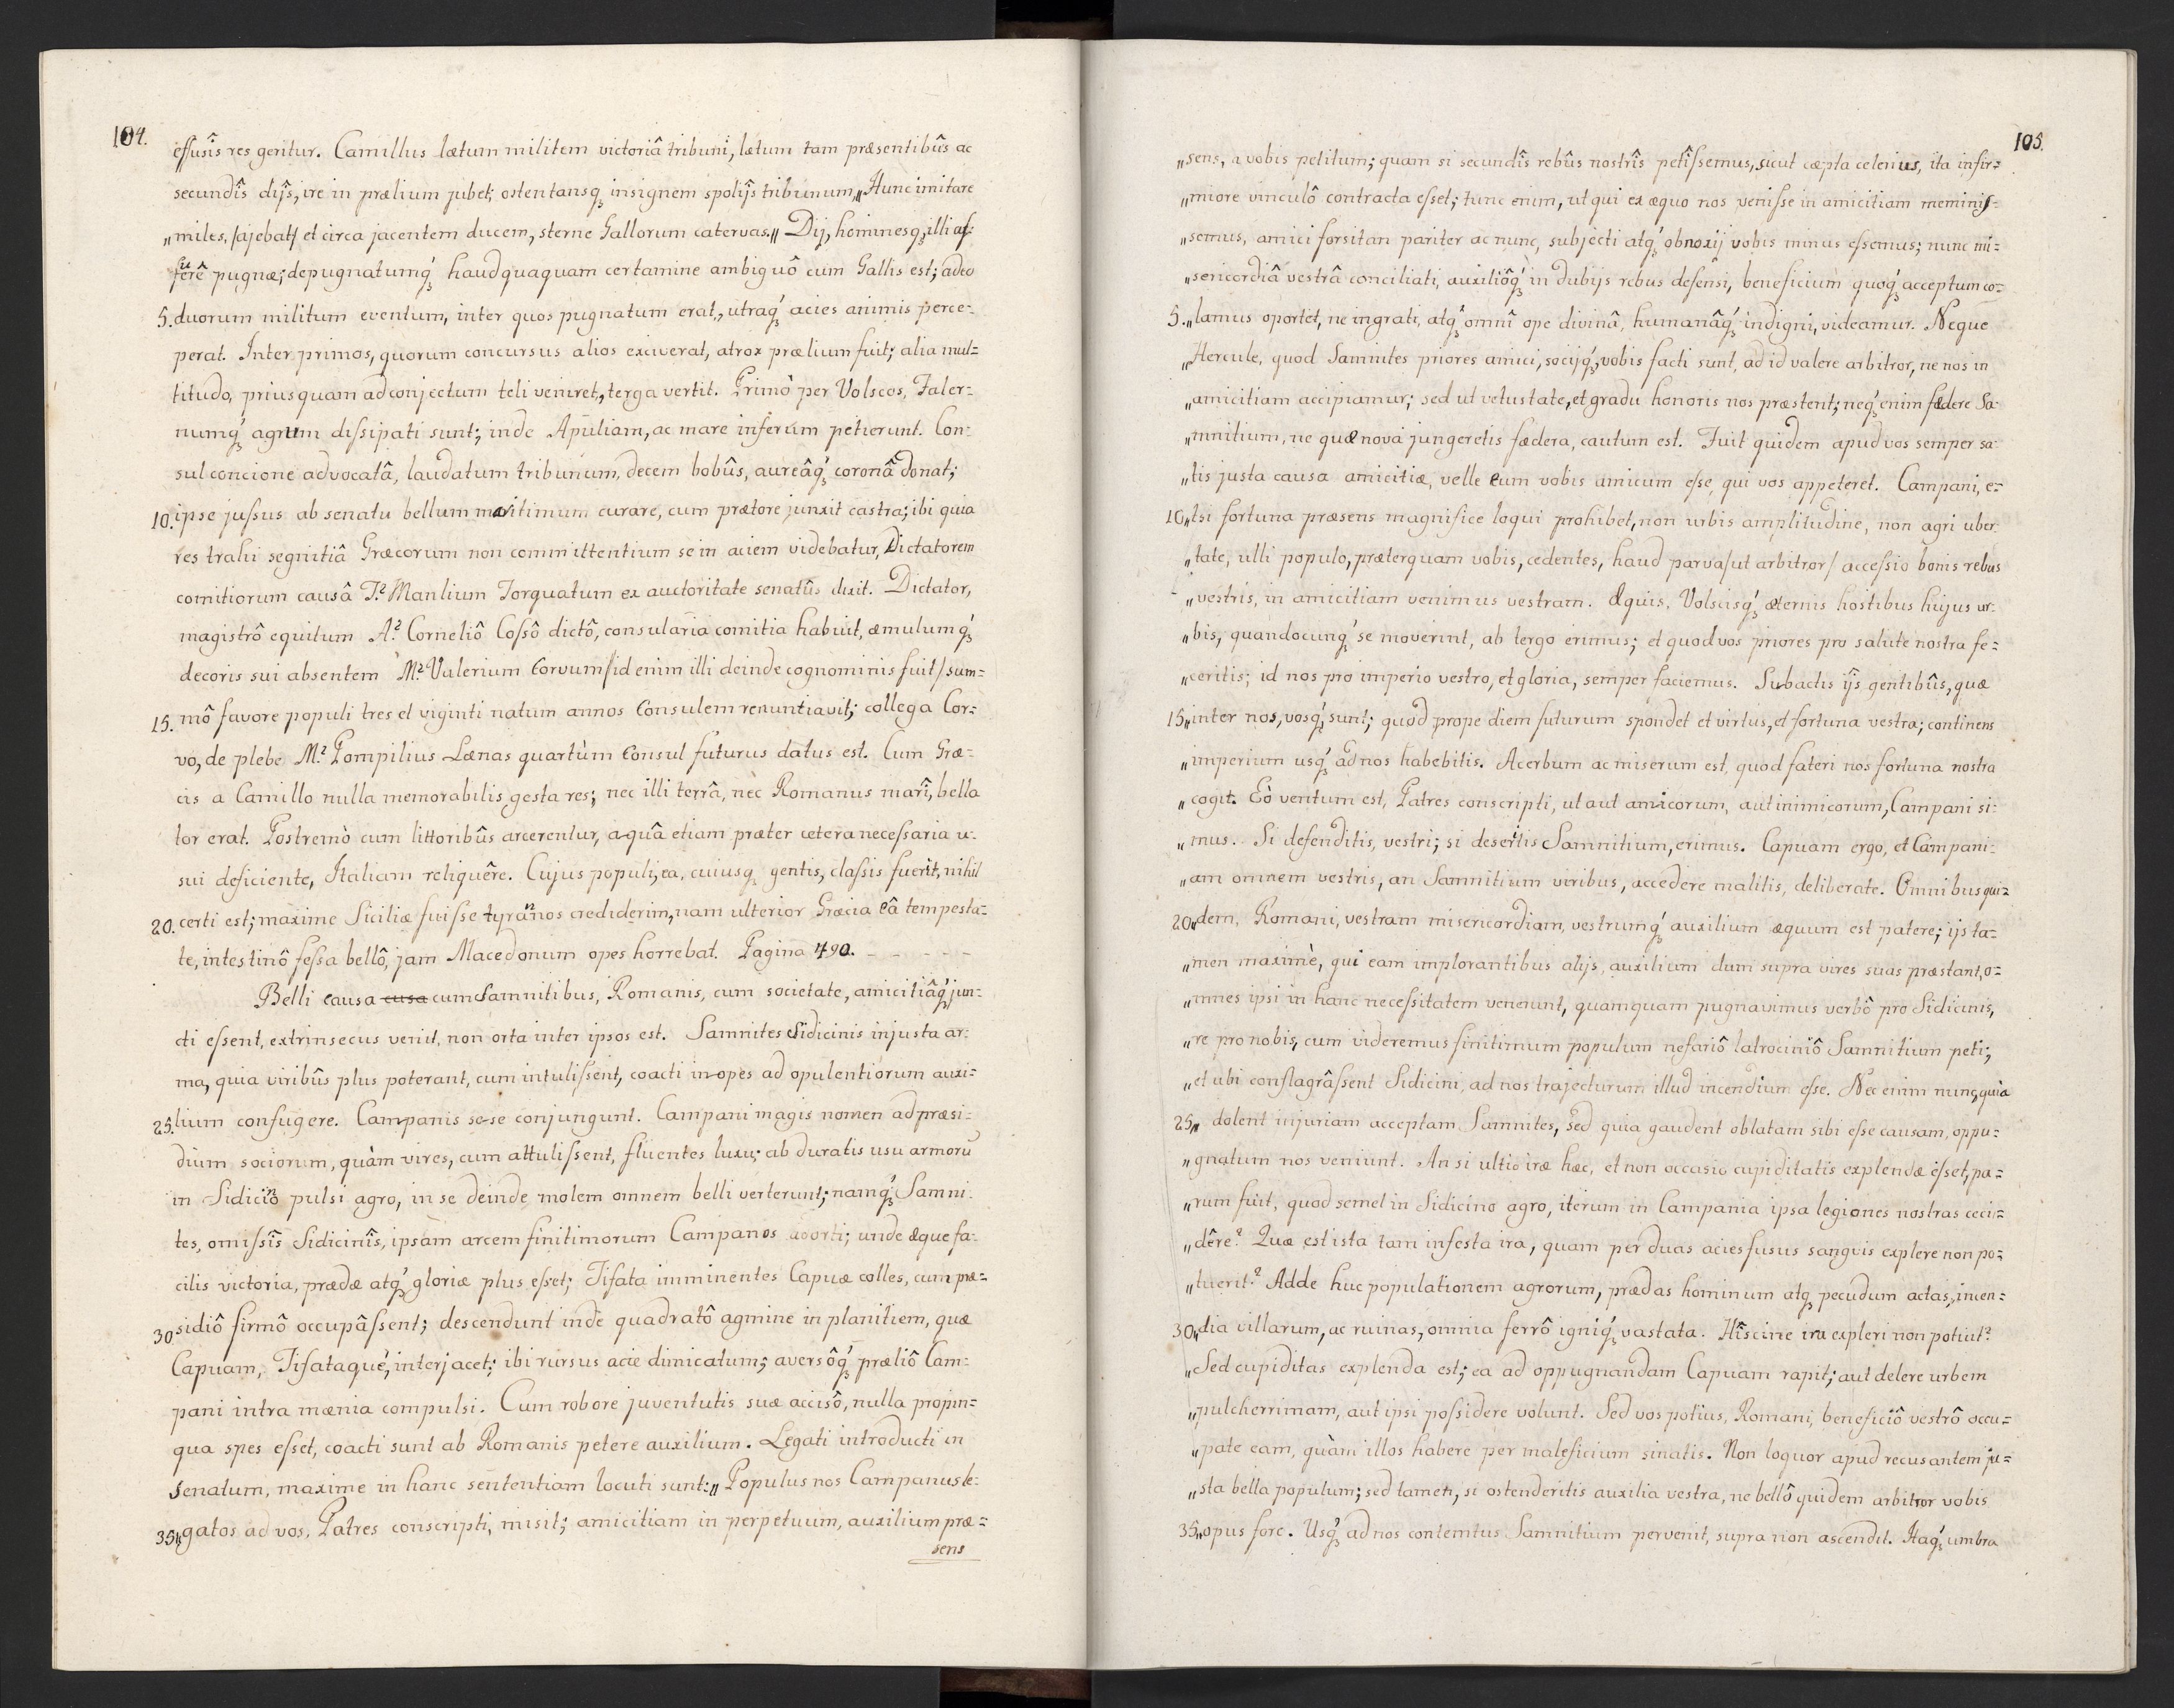 104.
effusîs res geritur. Camillus lætum militem victoriâ tribuni, lætum tam præsentibûs ac
secundîs dijs, ire in prælium jubet; ostentansq₃ insignem spolijs tribunum, „Hunc imitare
„miles, /ajebat/ et circa jacentem ducem, sterne Gallorum catervas.„ Dij, hominesq₃ illi af-
fuêrê pugnæ; depugnatumq́₃ haudquaquam certamine ambiguô cum Gallis est; adeo
5. duorum militum eventum, inter quos pugnatum erat, utraq́₃ acies animis perce-
perat. Inter primos, quorum concursus alios exciverat, atrox prælium fuit; alia mul-
titudo, priusquam ad conjectum teli veniret, terga vertit. Primò per Volscos, Faler-
numq́₃ agrum dissipati sunt; inde Apuliam, ac mare inferum petierunt. Con-
sul concione advocatâ, laudatum tribunum, decem bobûs, aureâq́₃ coronâ donat;
10. ipse jussus ab senatu bellum maritimum curare, cum prætore junxit castra; ibi quia
res trahi segnitiâ Græcorum non committentium se in aciem videbatur, Dictatorem
comitiorum causâ T.? Manlium Torquatum ex auctoritate senatûs dixit. Dictator,
magistrô equitum A.? Corneliô Cossô dictô, consularia comitia habuit, æmulumq́₃
decoris sui absentem M.? Valerium Corvum /id enim illi deinde cognominis fuit/ sum-
15. mô favore populi tres et viginti natum annos Consulem renuntiavit; collega Cor-
vo, de plebe M.? Pompilius Lænas quartùm Consul futurus datus est. Cum Græ-
cis a Camillo nulla memorabilis gesta res; nec illi terrâ, nèc Romanus marî, bella
tor erat. Postremò cum littoribûs arcerentur, aquâ etiam præter cetera necessaria u-
sui deficiente, Italiam reliquêre. Cujus populi, ea, cuiusq₃ gentis, classis fuerit, nihil
20. certi est; maxime Siciliæ fuisse tyrannos crediderim, nam ulterior Græcia eâ tempesta-
te, intestinô fessa bellô, jam Macedonum opes horrebat. Pagina 490. - - - - -
Belli causa cusa cum Samnitibus, Romanis, cum societate, amicitiâq́₃ jun-
cti essent, extrinsecus venit, non orta inter ipsos est. Samnites Sidicinis injusta ar-
ma, quia viribûs plus poterant, cum intulissent, coacti inopes ad opulentiorum auxi-
25. lium confugere. Campanis sese conjungunt. Campani magis nomen ad præsi-
dium sociorum, quàm vires, cum attulissent, fluentes luxu; ab duratis usu armorū
in Sidicinô pulsi agro, in se deinde molem omnem belli verterunt; namq́₃ Samni-
tes, omissîs Sidicinîs, ipsam arcem finitimorum Campanos adorti; unde æque fa-
cilis victoria, prædæ atq́₃ gloriæ plus esset; Tifata imminentes Capuæ colles, cum præ-
30. sidiô firmô occupâssent; descendunt inde quadratô agmine in planitiem, quæ
Capuam, Tifataque, interjacet; ibi rursus acie dimicatum; aversôq́₃ præliô Cam-
pani intra mænia compulsi. Cum robore juventutis suæ accisô, nulla propin-
qua spes esset, coacti sunt ab Romanis petere auxilium. Legati introducti in
senatum, maxime in hanc sententiam locuti sunt: „Populus nos Campanus le-
35. „gatos ad vos, Patres conscripti, misit; amicitiam in perpetuum, auxilium præ-
sens
105.
„sens, a vobis petitum; quam si secundîs rebûs nostrîs petîssemus, sicut cæpta celerius, ita infir-
„miore vinculô contracta esset; tunc enim, ut qui ex æquo nos venisse in amicitiam meminis-
„semus, amici forsitan pariter ac nunc, subjecti atq́₃ obnoxij vobis minus essemus; nunc mi-
„sericordiâ vestrâ conciliati, auxiliôq́₃ in dubijs rebus defensi, beneficium quoq́₃ acceptum co-
5. „lamus oportet, ne ingrati, atq́₃ omnî ope divinâ, humanâq́₃ indigni, videamur. Neque
„Hercule, quod Samnites priores amici, socijq́₃, vobis facti sunt, ad id valere arbitror, ne nos in
„amicitiam accipiamur; sed ut vetustate, et gradu honoris nos præstent; neq́₃ enim fædere Sa-
„mnitium, ne quæ nova jungeretis fædera, cautum est. Fuit quidem apud vos semper sa-
„tis justa causa amicitiæ, velle eum vobis amicum esse, qui vos appeteret. Campani, e-
10. „tsi fortuna præsens magnifice loqui prohibet, non urbis amplitudine, non agri uber-
„tate, ulli populo, præterquam vobis, cedentes, haud parva /ut arbitror/ accessio bonis rebus
„vestris, in amicitiam venimus vestram. Æquis, Volscisq́₃ æternis hostibus hujus ur-
„bis, quandocunq́₃ se moverint, ab tergo erimus; et quod vos priores pro salute nostra fe-
„ceritis; id nos pro imperio vestro, et gloria, semper faciemus. Subactis ijs gentibûs, quæ
15. „inter nos, vosq́₃ sunt; quod prope diem futurum spondet et virtus, et fortuna vestra; continens
„imperium usq́₃ ad nos habebitis. Acerbum ac miserum est, quod fateri nos fortuna nostra
„cogit. Eò ventum est, Patres conscripti, ut aut amicorum, aut inimicorum, Campani si-
„mus. Si defenditis, vestri; si desertis Samnitium, erimus. Capuam ergo, et Campani-
„am omnem vestris, an Samnitium viribus, accedere malitis, deliberate. Omnibus qui-
20. „dem, Romani, vestram misericordiam, vestrumq́₃ auxilium æquum est patere; ijs ta-
„men maximè, qui eam implorantibus alijs, auxilium dum supra vires suas præstant, o-
„mnes ipsi in hanc necessitatem venerunt, quamquam pugnavimus verbô pro Sidicinis,
„re pro nobis, cum videremus finitimum populum nefariô latrociniô Samnitium peti;
„et ubi conflagrâssent Sidicini, ad nos trajecturum illud incendium esse. Nec enim nunc, quia
25. „dolent injuriam acceptam Samnites, sed quia gaudent oblatam sibi esse causam, oppu-
„gnatum nos veniunt. An si ultio iræ hæc, et non occasio cupiditatis explendæ esset, pa-
„rum fuit, quod semel in Sidicino agro, iterum in Campania ipsa legiones nostras ceci-
„dêre? Quæ est ista tam infesta ira, quam per duas acies fusus sanguis explere non po-
„tuerit? Adde huc populationem agrorum, prædas hominum atq₃ pecudum actas, incen-
30. „dia villarum, ac ruinas, omnia ferrô igniq́₃ vastata. Hîscine ira expleri non potuit?
„Sed cupiditas explenda est; ea ad oppugnandam Capuam rapit; aut delere urbem
„pulcherrimam, aut ipsi possidere volunt. Sed vos potius, Romani, beneficiô vestrô occu-
„pate eam, quàm illos habere per maleficium sinatis. Non loquor apud recusantem ju-
„sta bella populum; sed tamen, si ostenderitis auxilia vestra, ne bellô quidem arbitror vobis
35. „opus fore. Usq́₃ ad nos contemtus Samnitium pervenit, supra non ascendit. Itaq́₃ umbra